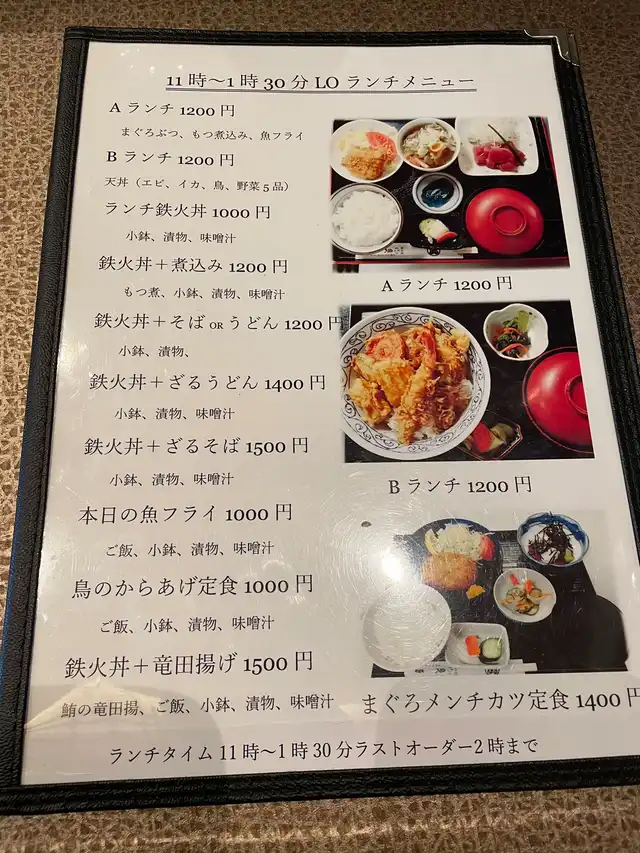 11時〜1時30分LO ランチメニュー
Aランチ 1200円
まぐろぶつ、もつ煮込み、魚フライ
Bランチ 1200円
天丼（エビ、イカ、鳥、野菜5品）
ランチ鉄火丼 1000円
小鉢、漬物、味噌汁
鉄火丼＋煮込み 1200円
もつ煮、小鉢、漬物、味噌汁
鉄火丼＋そば OR うどん 1200円
小鉢、漬物、
鉄火丼＋ざるうどん 1400円
小鉢、漬物、味噌汁
鉄火丼＋ざるそば 1500円
小鉢、漬物、味噌汁
本日の魚フライ 1000円
ご飯、小鉢、漬物、味噌汁
鳥のからあげ定食 1000円
ご飯、小鉢、漬物、味噌汁
鉄火丼＋竜田揚げ 1500円
鮪の竜田揚、ご飯、小鉢、漬物、味噌汁
Aランチ 1200円
Bランチ 1200円
まぐろメンチカツ定食 1400円
ランチタイム 11時〜1時30分ラストオーダー2時まで